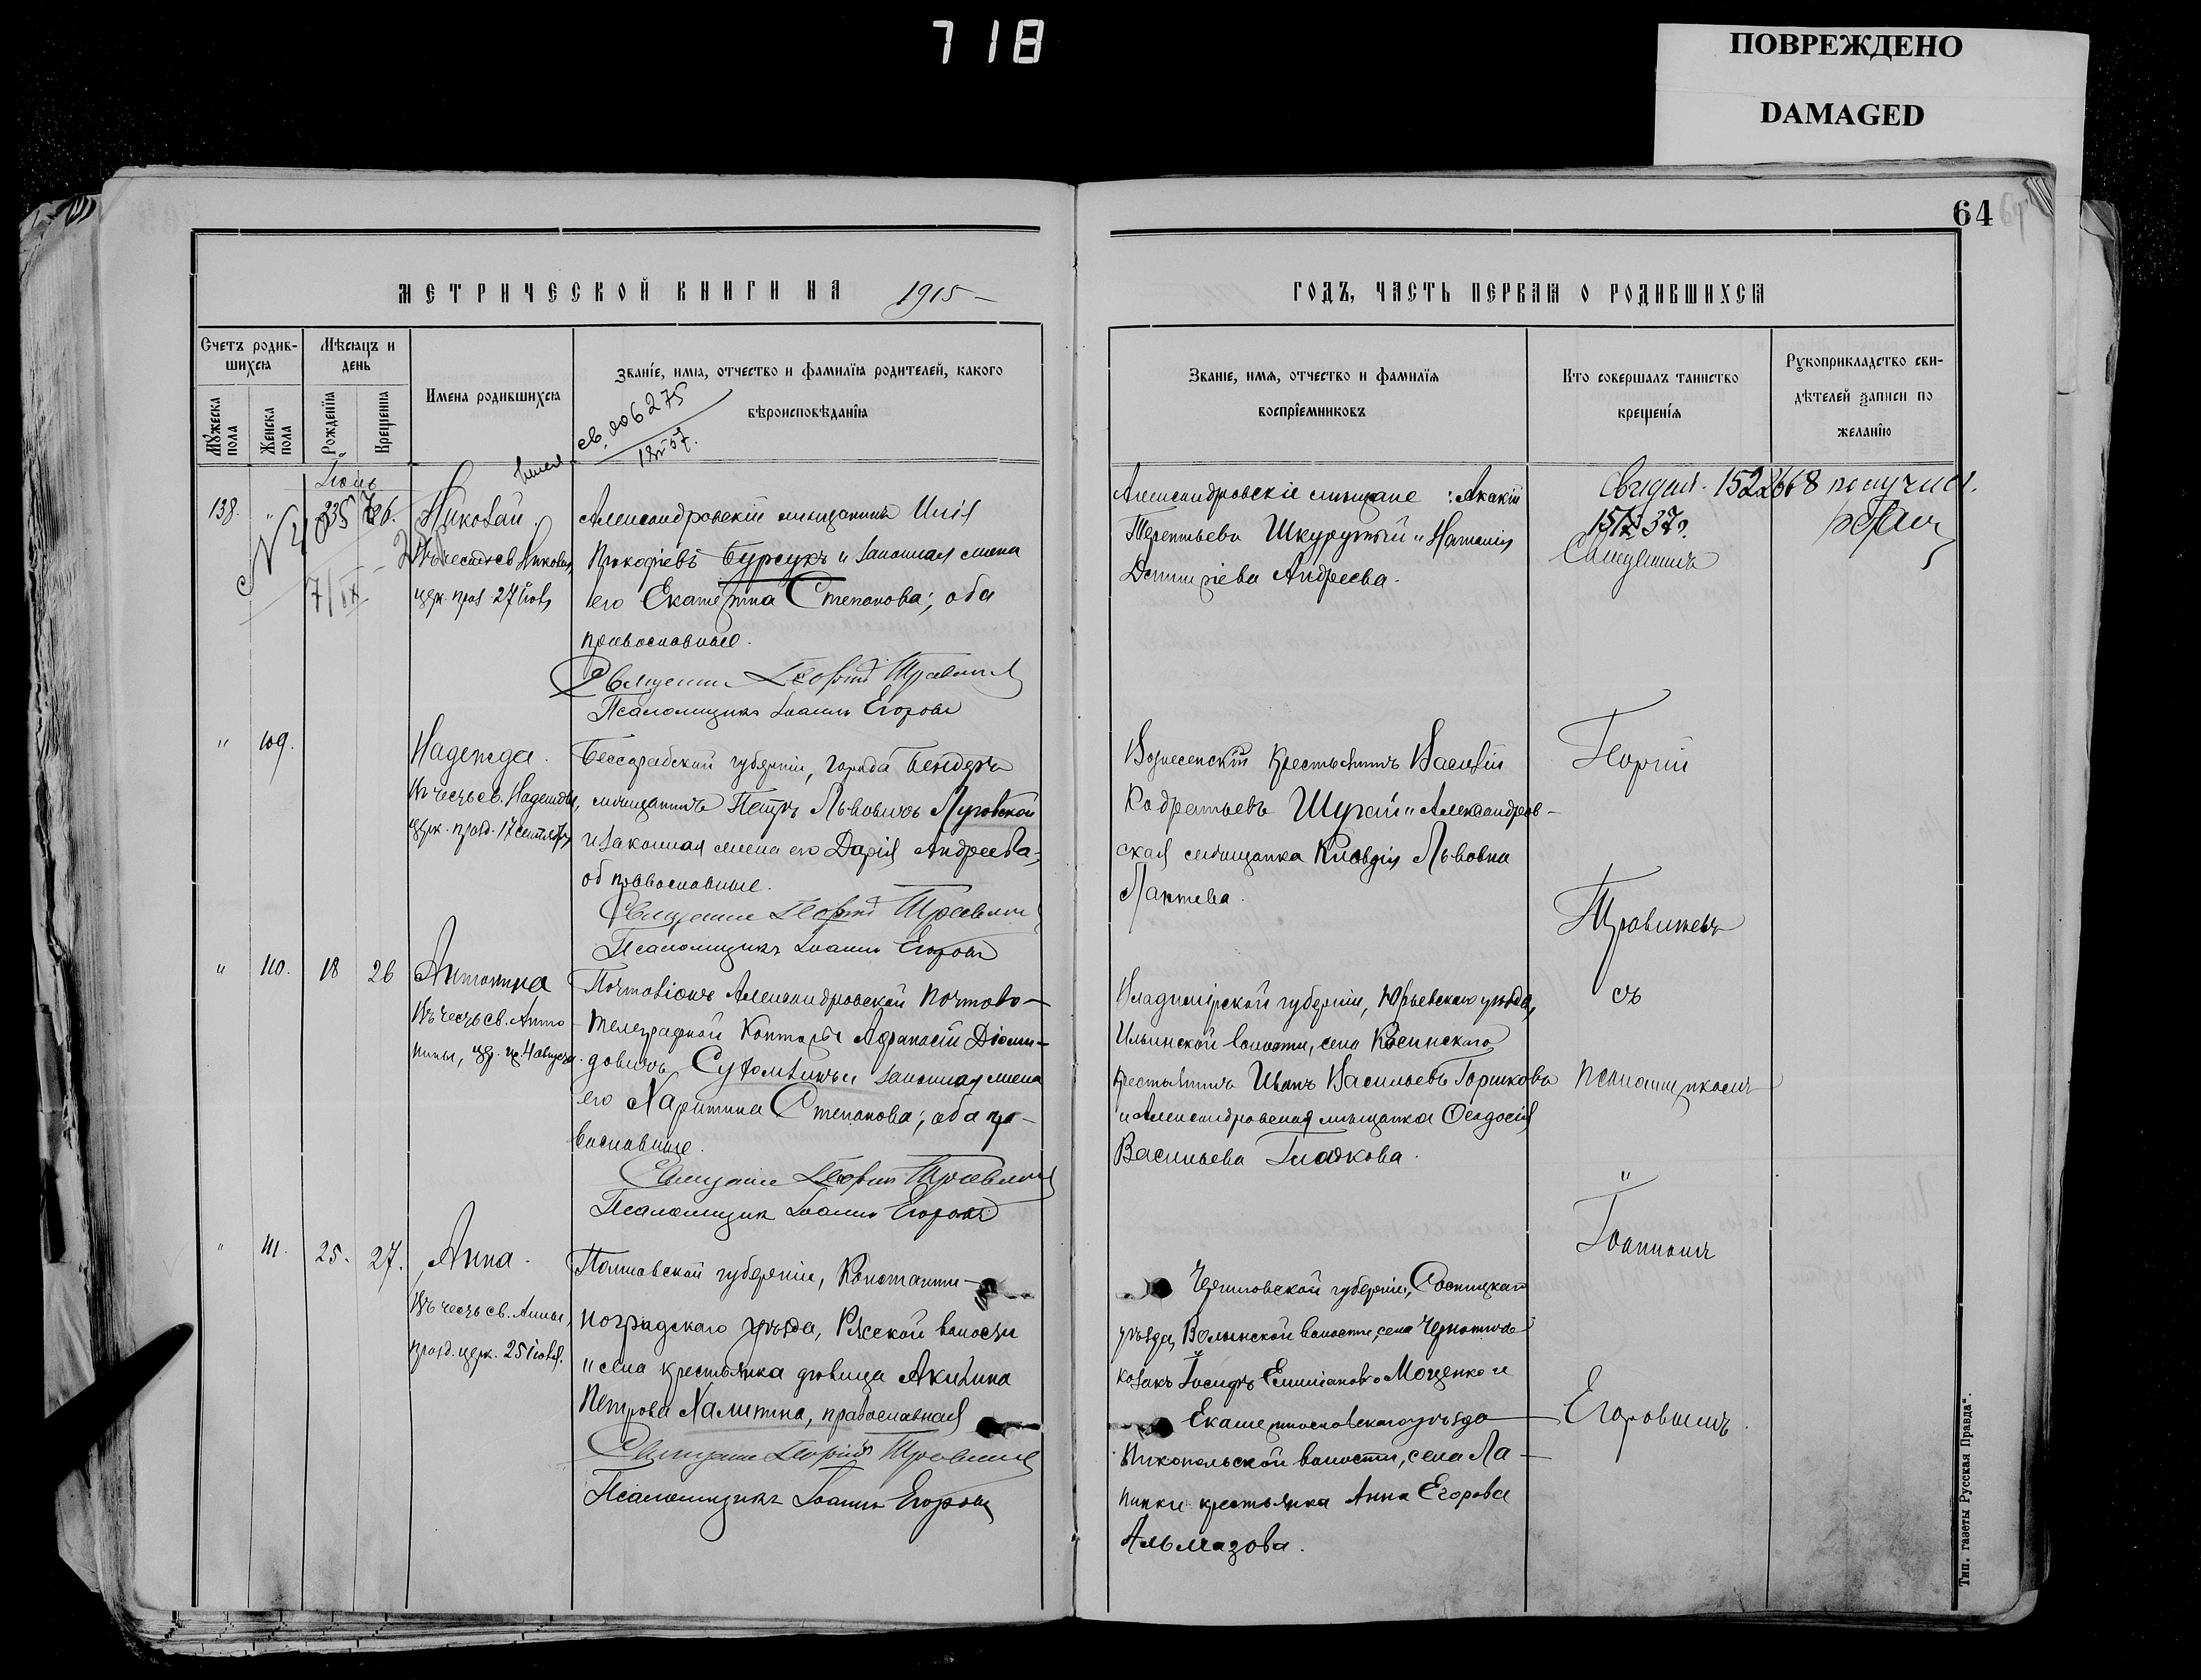 718
ПОВРЕЖДЕНО
DAMAGED
64
МЕТРИЧЕСКОЙ КНИГИ НА 1915
ГОДЪ, ЧАСТЬ ПЕРВАЯ О РОДИВШИХСЯ
Счетъ родив-
шихся
Мѣсяцъ и
день
Имена родившихся
Званіе, имя, отчество и фамилія родителей, какого
вѣроисповѣданія
Мужеска пола
Женска пола
Рожденія
Крещенія
Званіе, имя, отчество и фамилія
воспріемниковъ
Кто совершалъ таинство
крещенія
Рукоприкладство сви-
дѣтелей записи по
желанію
св. 006275
138. " 26.
Николай.
церк. праз. 27
Александровскій мѣщанинъ Илія
Прокофіевъ Бурсукъ и законная жена
его Екатерина Степанова; оба
православные.
Священникъ Георгій
Псаломщикъ Іоаннъ Егоровъ
Александровскіе мѣщане: Акакій
Терентьевъ Шкурупій и Наталія
Димитріева Андреева.
Священникъ
" 109.
Надежда.
Въ честь св. Надежды,
церк. празд. 17 сентября
Бессарабской губерніи, города Бендеръ
мѣщанинъ Петръ Львовичъ
и законная жена его Дарія Андреева,
об православные.
Священникъ Георгій
Псаломщикъ Іоаннъ Егоровъ
Вознесенскій крестьянинъ Василій
Кодратьевъ Шугай и Александров-
ская мѣщанка Клавдія Львовна
Лактева.
Георгій
" 110. 18 26
Антонина
Въ честь св. Анто-
нины,
Почталіонъ Александровской почтово-
телеграфной Конторы Афанасій Діоми-
довичъ законная жена
его Харитина Степанова; оба пра-
вославные.
Священникъ Георгій
Псаломщикъ Іоаннъ Егоровъ
Владимірской губерніи, Юрьевскаго уѣзда,
Ильинской волости, села Косинскаго
крестьянинъ Иванъ Васильевъ Горшковъ
и Александровская мѣщанка Ѳеодосія
Васильева Гладкова.
съ
псаломщикомъ
"
Іоанномъ
" 111. 25. 27.
Анна.
Въ честь св. Анны,
празд. церк. 25 іюля.
Полтавской губерніи, Константи-
ноградскаго уѣзда, Ряской волости
и села крестьянка дѣвица Акилина
Петрова Халитина, православная
Священникъ Георгій
Псаломщикъ Іоаннъ Егоровъ
Черниговской губерніи, Сосницкаго
уѣзда, Волынской волости, села
козакъ Іосифъ Моценко и
Екатеринославскаго уѣзда
Никопольской волости, села Ла-
пинки крестьянка Анна Егорова
Альмазова.
Егоровымъ.
Тип. газеты Русская Правда".